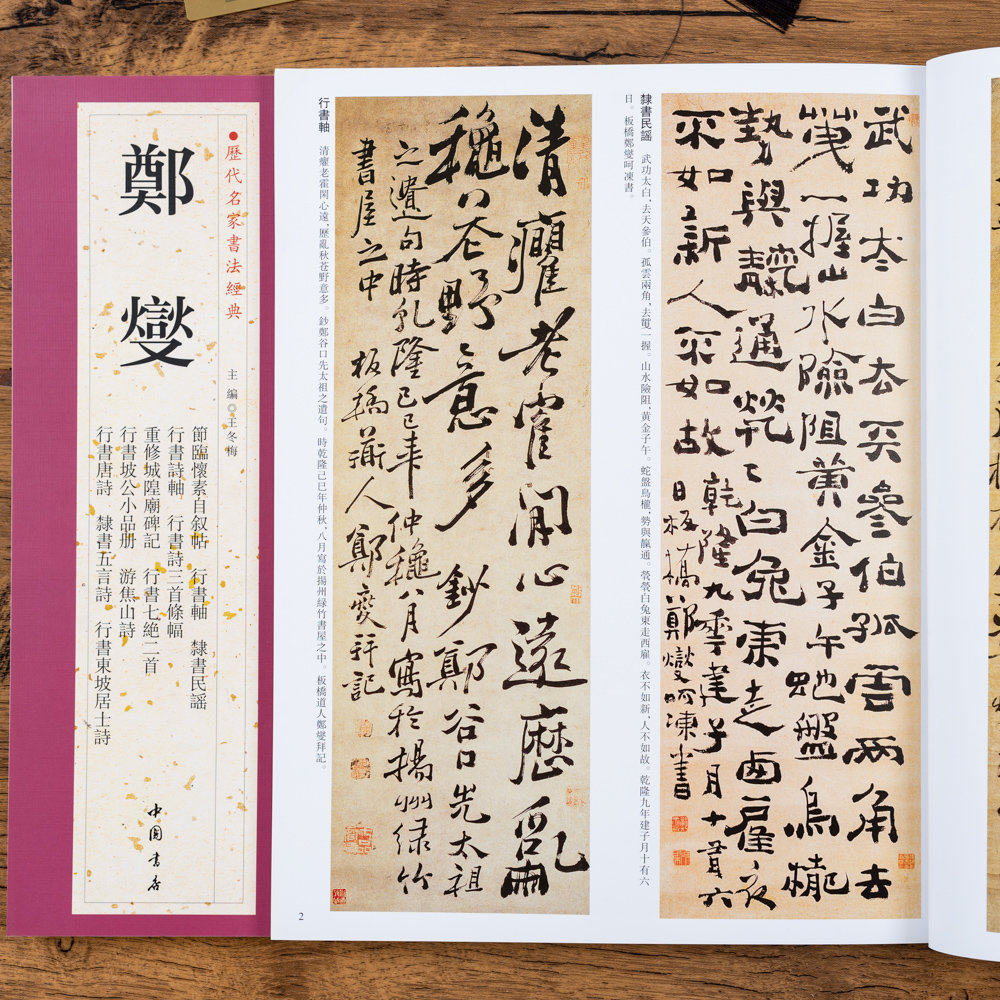 ●歷代名家書法經典
鄭燮
主編◎王冬梅
節臨懷素自叙帖 行書軸 隸書民謡
行書詩軸 行書詩三首條幅
重修城隍廟碑記 行書七絶二首
行書坡公小品册 游焦山詩
行書唐詩 隸書五言詩 行書東坡居士詩
中國書店
武功太白去天參伯孤雲兩角去
䨥一握山水險阻黄金子午虵盤烏櫳
勢與䶬通煢〻白兔東走西雇衣
不如新人不如故乾隆九年建子月十有六
日板橋鄭燮呵凍書
隸書民謡 武功太白,去天參伯。孤雲兩角,去䨥一握。山水險阻,黄金子午。蛇盤鳥櫳,勢與䶬通。煢煢白兔東走西雇。衣不如新,人不如故。乾隆九年建子月十有六
日。板橋鄭燮呵凍書。
清癯老霍閑心遠歷亂
秋蒼野意多鈔鄭谷口先太祖
之遺句時乾隆己巳年仲秋八月寫於揚州緑竹
書屋之中 板橋道人鄭燮拜記
行書軸 清癯老霍閑心遠,歷亂秋苍野意多。鈔鄭谷口先太祖之遺句。時乾隆己巳年仲秋,八月寫於揚州緑竹書屋之中。板橋道人鄭燮拜記。
2